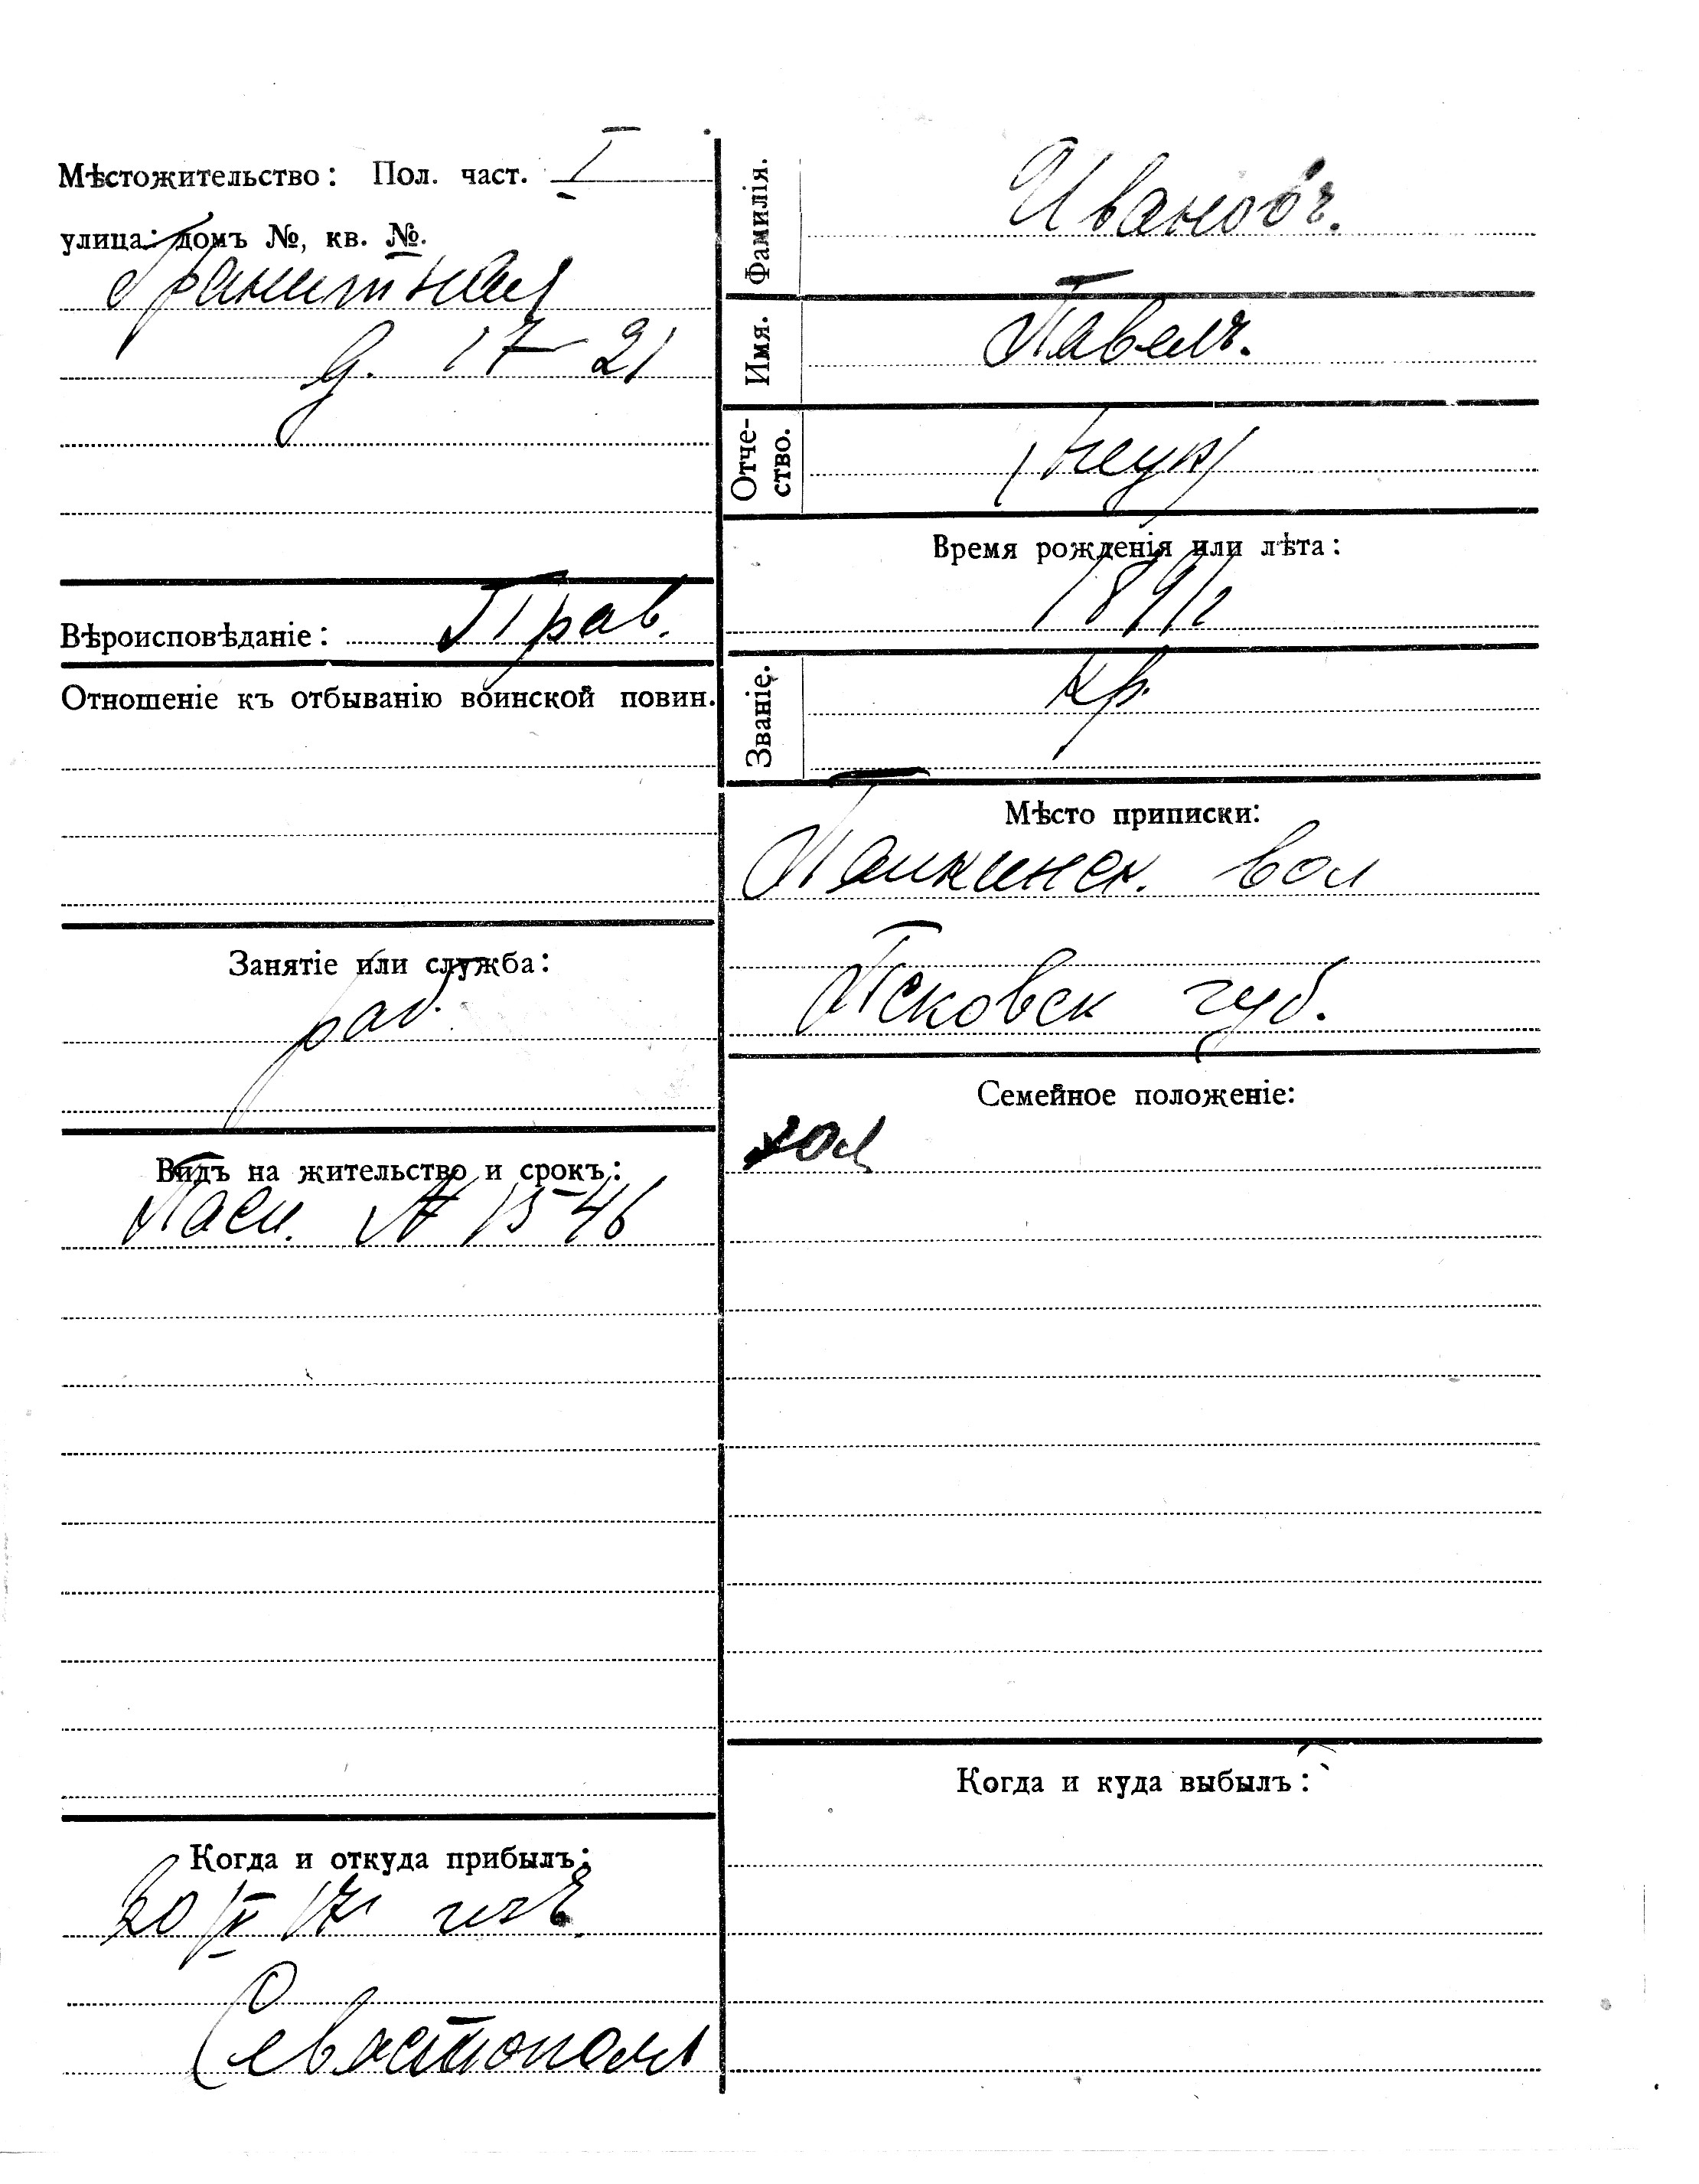 Мѣстожительство: Пол. част. I
улица: домъ №, кв. №.
Гранитная
д. 17-21
Вѣроисповѣданіе: Прав.
Отношеніе къ отбыванію воинской повин.
Занятіе или служба:
раб.
Видъ на жительство и срокъ:
Пасп. № 1546
Когда и откуда прибылъ:
20/ 17 изъ
Севастополя
Фамилія. Ивановъ.
Имя. Павелъ.
Отчество. (неук)
Время рожденія или лѣта:
1891
Званіе. кр.
Мѣсто приписки:
вол
Псковск губ.
Семейное положеніе:
хол
Когда и куда выбылъ: